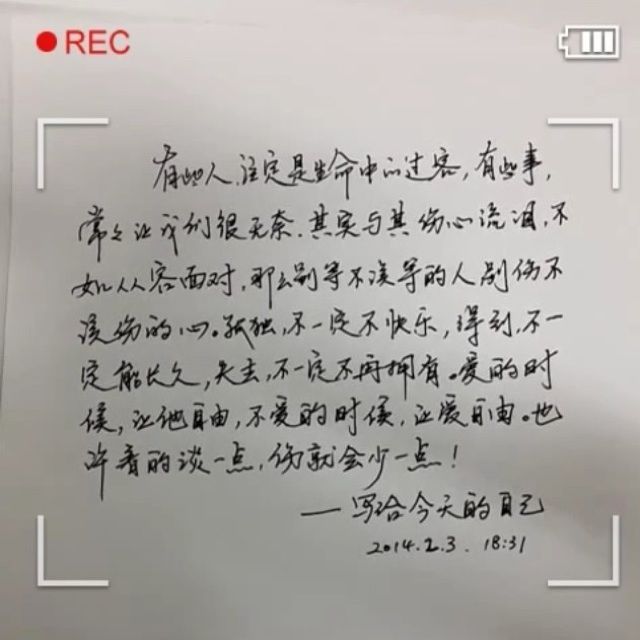 REC
有些人注定是生命中的过客,有些事,
常々让我们很无奈.其实与其伤心流泪,不
如从容面对,那么别等不该等的人别伤不
该伤的心。孤独,不一定不快乐,得到,不一
定能长久,失去,不一定不再拥有。爱的时
候,让他自由,不爱的时候,让爱自由。也
许看的淡一点,伤就会少一点!
——写给今天的自己
2014.2.3. 18:31